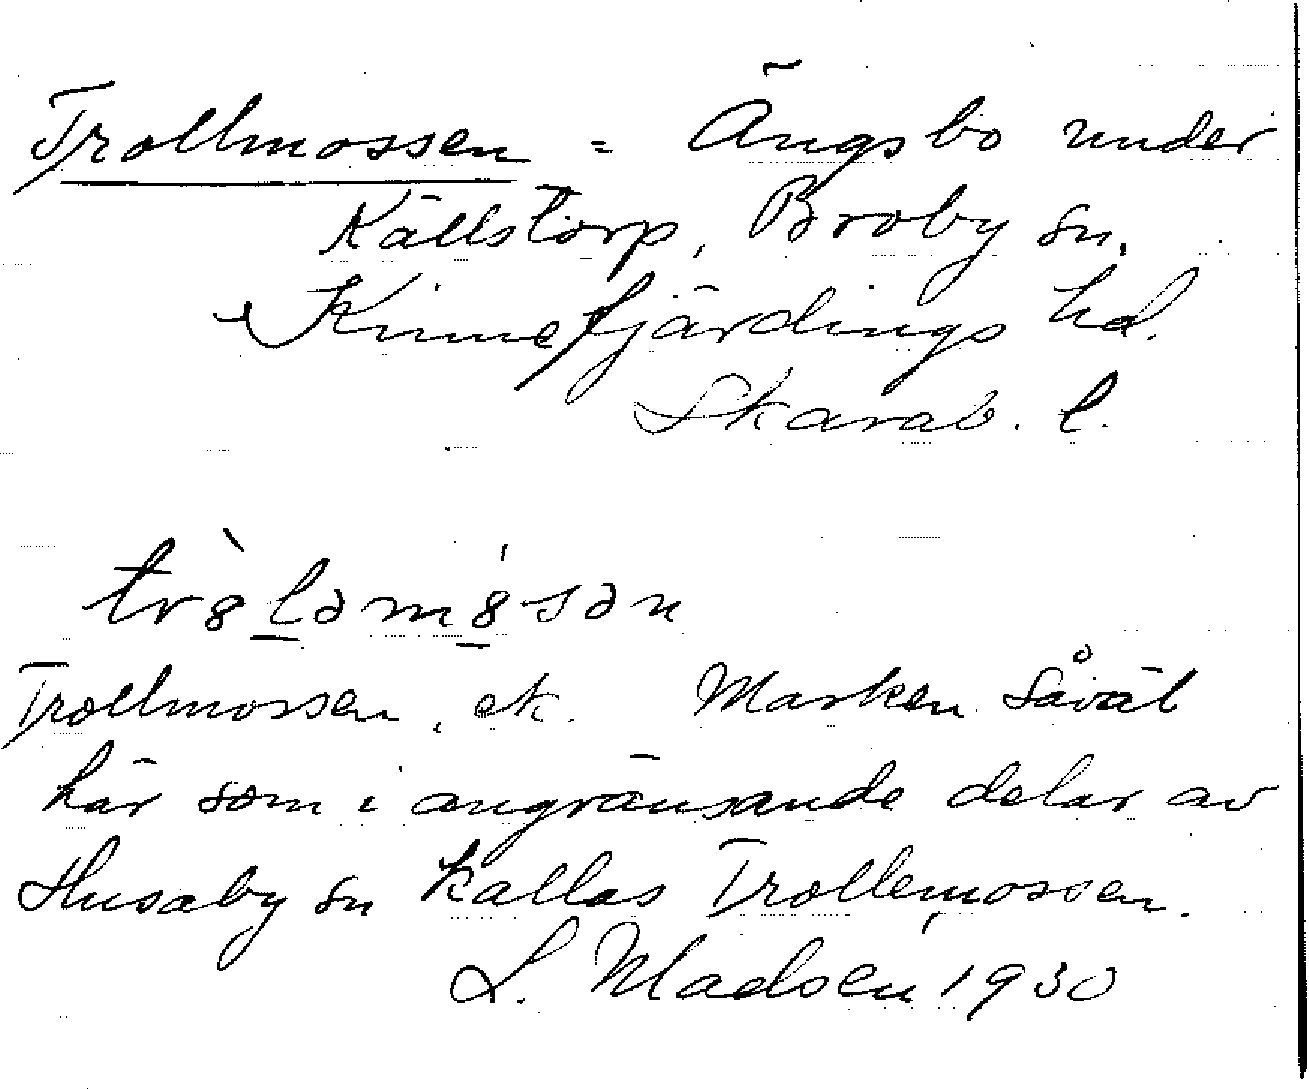 Trollmossen = Ängsbo under
Källstorp, Broby sn,
Kinnefjärdings hd.
Skarab. l.
Trollmossen, ek. Marken såväl
här som i angränsande delar av
Husaby sn kallas Trollemossen.
L. Madsen 1930